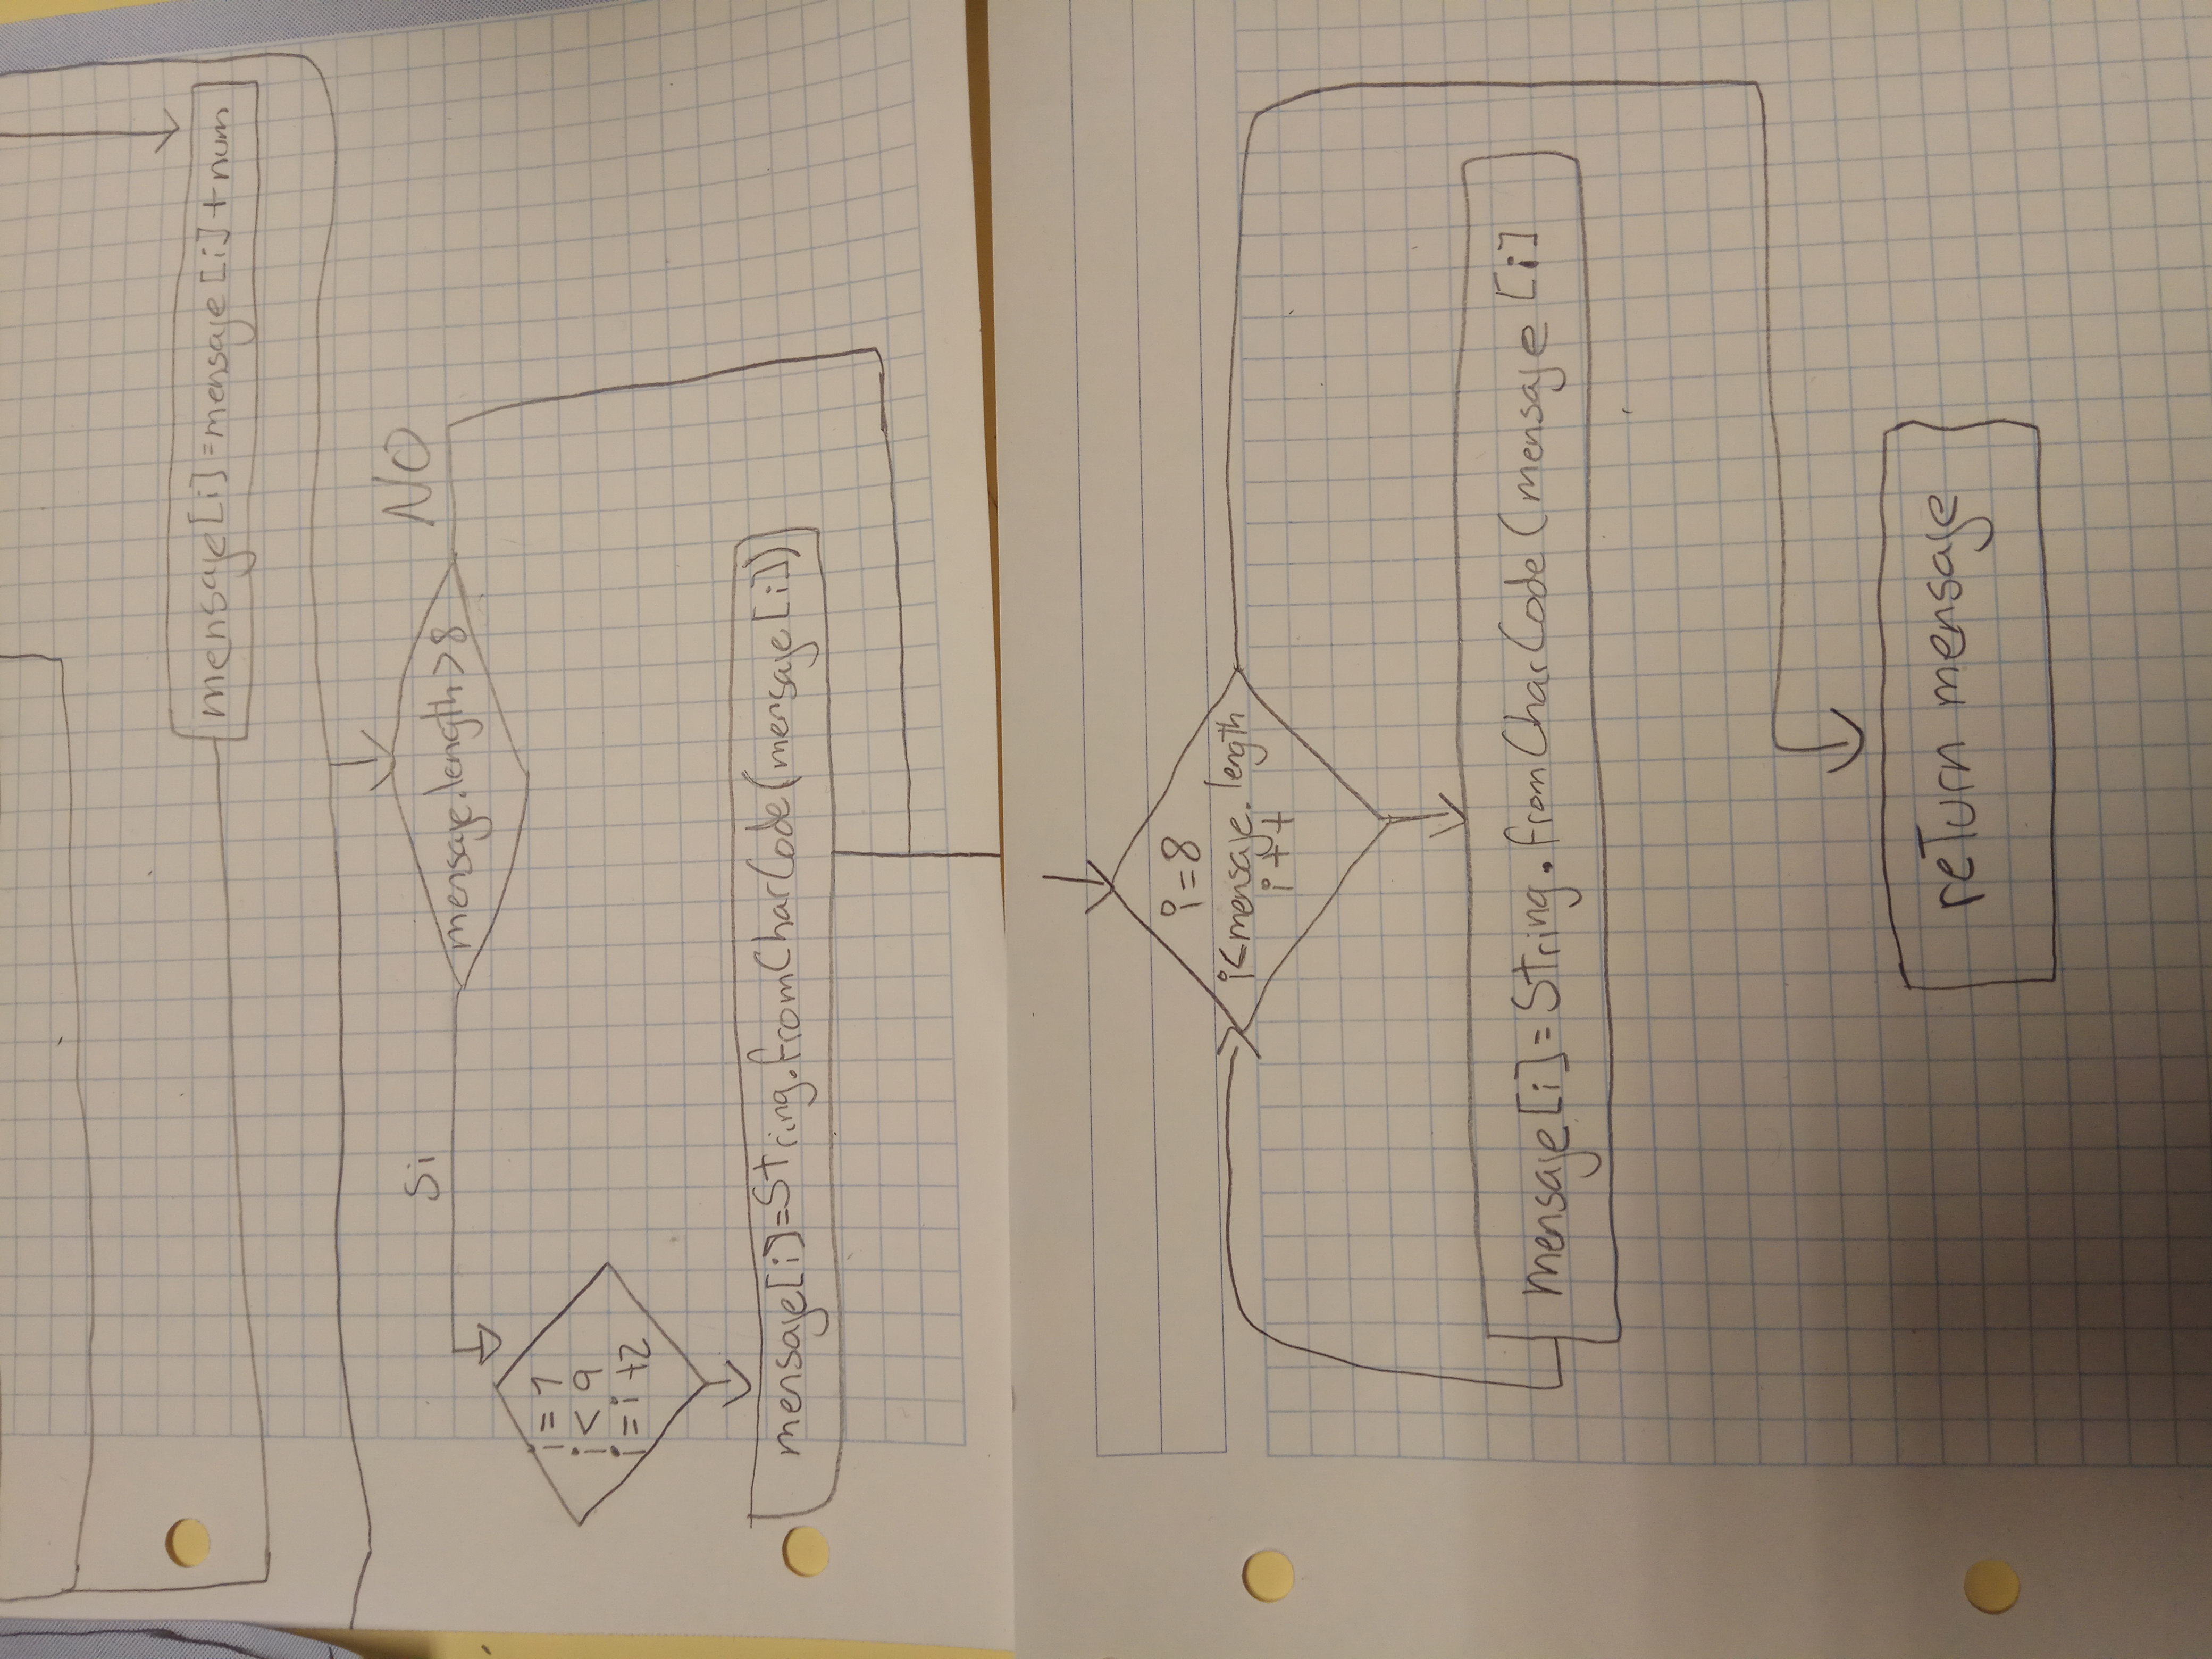 mensaje[i]=mensaje[i]+num
mensaje.length>8
NO
Si
i=1
i<9
i=i+2
mensaje[i]=String.fromCharCode(mensaje[i])
i=8
i<mensaje.length
i++
mensaje[i]=String.fromCharCode(mensaje[i]
return mensaje